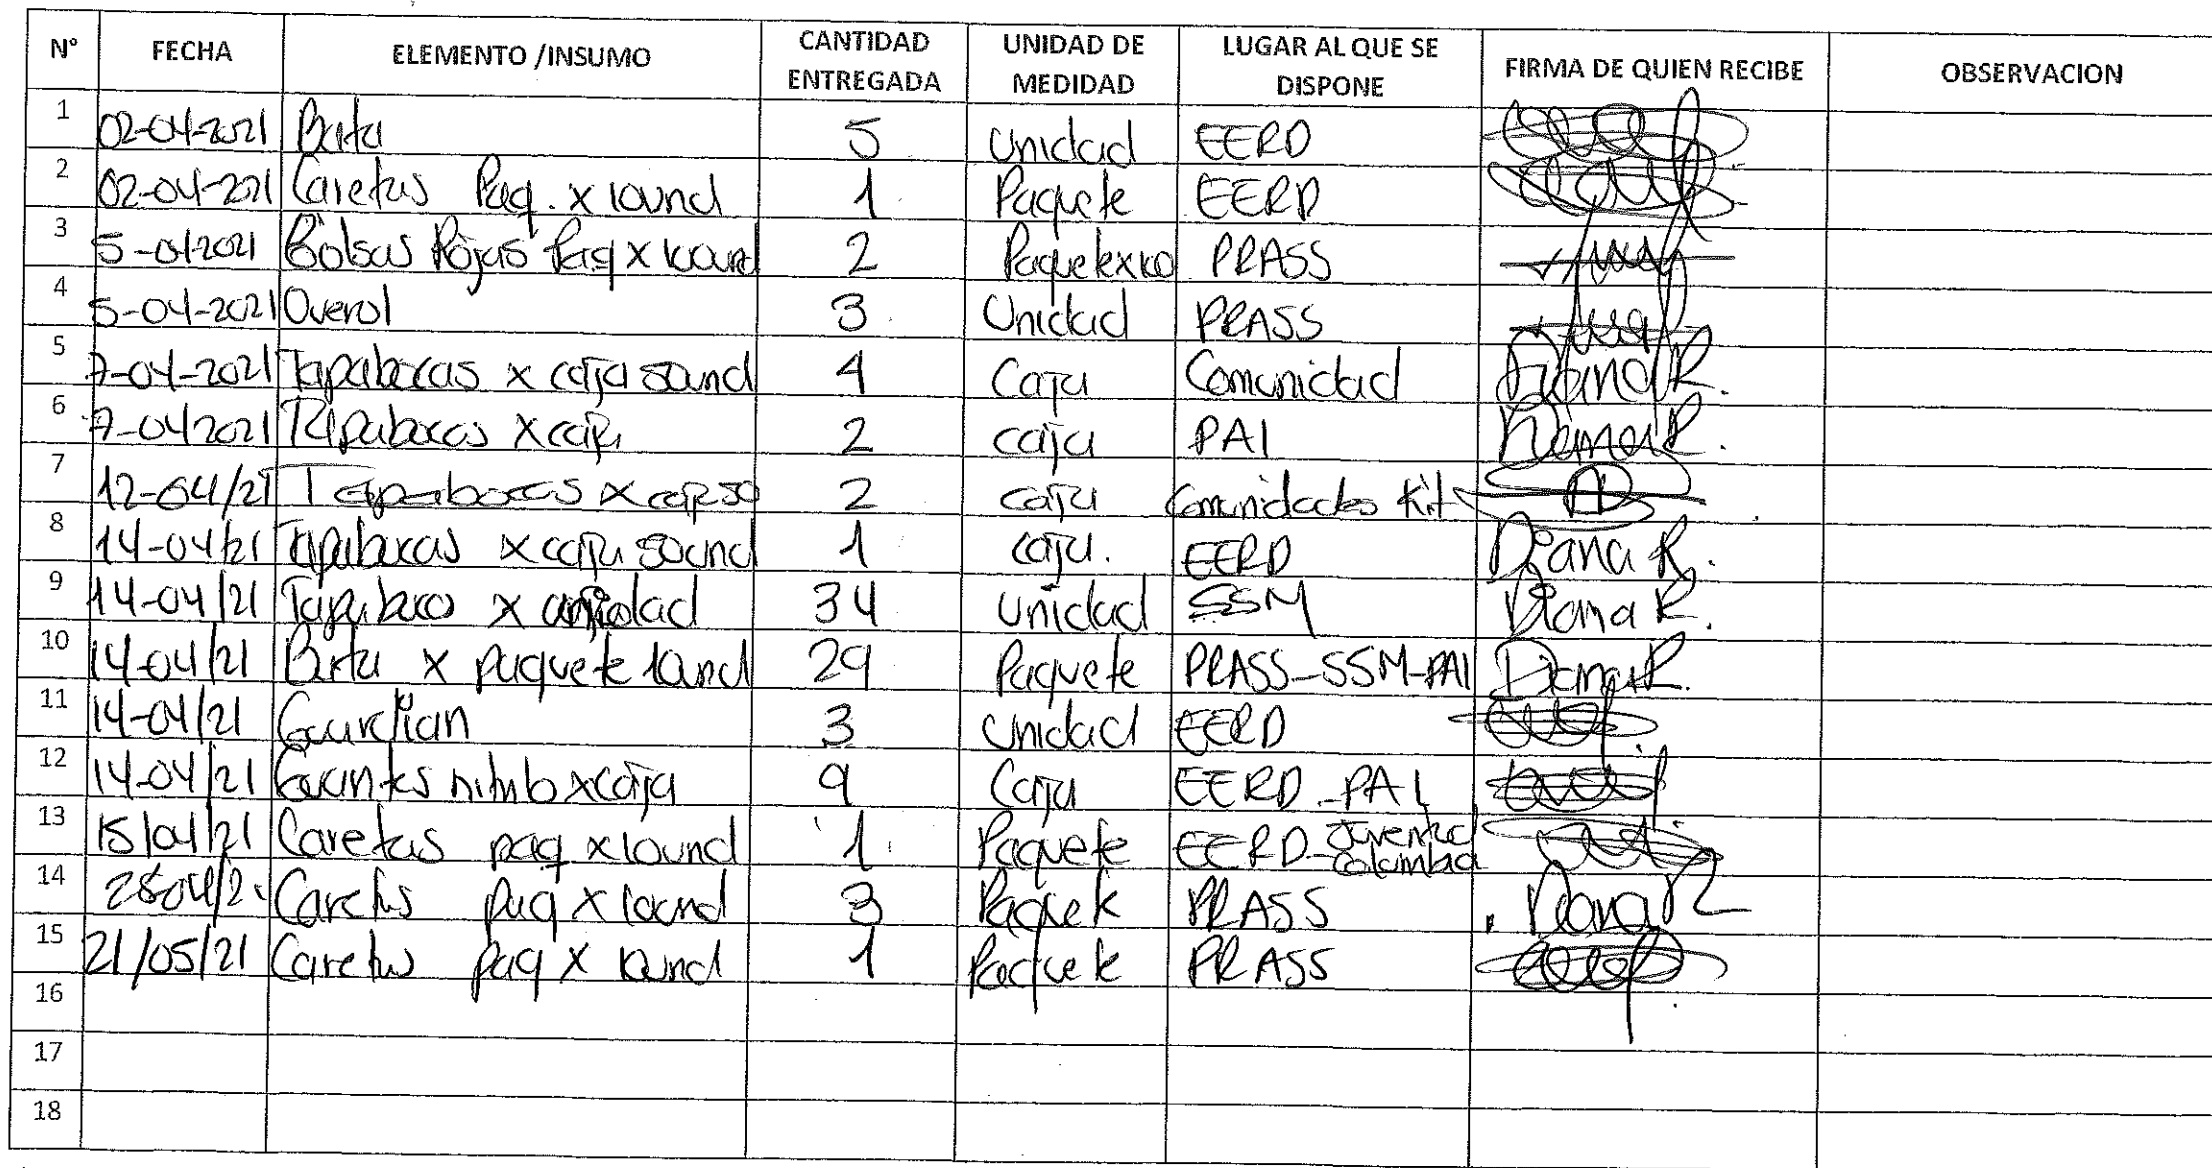 N° FECHA ELEMENTO /INSUMO CANTIDAD ENTREGADA UNIDAD DE MEDIDAD LUGAR AL QUE SE DISPONE FIRMA DE QUIEN RECIBE OBSERVACION
1 02-04-2021 Bata 5 Unidad EERD
2 02-04-2021 Caretas Paq. x 10und 1 Paquete EERD
3 5-04-2021 Bolsas Rojas Paq x 100und 2 Paquetex100 PRASS
4 5-04-2021 Overol 3 Unidad PRASS
5 7-04-2021 Tapabocas x caja 50und 4 Caja Comunidad Diana R.
6 7-04-2021 Tapabocas x caja 2 caja PAI Diana R.
7 12-04/21 Tapabocas x caja 50 2 caja Comunidades Kit
8 14-04/21 Tapabocas x caja 50und 1 caja. EERD Diana R.
9 14-04/21 Tapabocas x unidad 34 unidad SSM Diana R.
10 14-04/21 Bata x paquete 10und 29 Paquete PRASS-SSM-PAI Diana R.
11 14-04/21 Guardian 3 Unidad EERD
12 14-04/21 Guantes nitrilo x caja 9 Caja EERD-PAI
13 15/04/21 Caretas paq. x 10und 1 Paquete EERD-Juventud Colombia
14 28-04/21 Caretas paq x 10und 3 Paquete PRASS Diana R
15 21/05/21 Caretas paq x 10und 1 Paquete PRASS
16
17
18